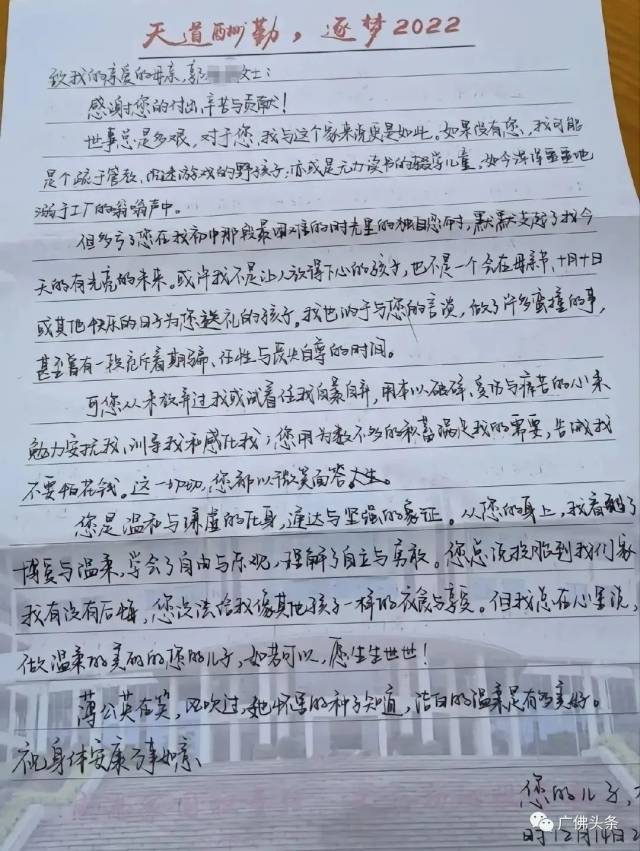 天道酬勤，逐梦2022
致我的亲爱的母亲，郭 女士：
感谢您的付出、辛苦与贡献！
世事总是多艰，对于您、我与这个家来说更是如此。如果没有您，我可能
是个疏于管教、内迷游戏的野孩子；亦或是无力读书的辍学儿童，如今浑浑噩噩地
溺于工厂的嗡嗡声中。
但多亏了您在我初中那段最困难的时光里的独自您付，默默支起了我今
天的有光亮的未来。或许我不是让人放得下心的孩子，也不是一个会在母亲节、十月十日
或其他快乐的日子为您送礼的孩子。我也的于与您的言谈，做了许多蛮撞的事，
甚至曾有一段充斥着期骗、任性与丧失自尊的时间。
可您从未放弃过我或试着任我自暴自弃，用本以破碎、受伤与痛苦的心来
勉力安抚我、训导我和感化我；您用为数不多的积蓄满足我的需要，告诫我
不要怕花钱。这一切切，您都以微笑面答人生。
您是温和与谦虚的化身，达与坚强的象征。从您的身上，我看到了
博爱与温柔，学会了自由与乐观，理解了自立与勇敢。您总说投胎到我们家
我有没有后悔，您没法给我像其他孩子一样的衣食与享受。但我总在心里说，
做温柔的美丽的您的儿子，如若可以，愿生生世世！
蒲公英在笑，风吹过，她怀里的种子知道，洁白的温柔是有多美好。
祝身体安康万事如意
您的儿子，
时12月14日
广佛头条